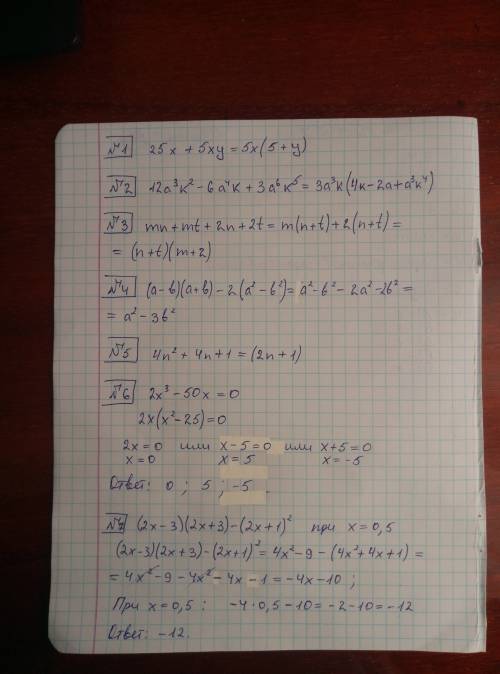 №1 25x + 5xy = 5x(5+y)
№2 12a³к² - 6a⁴к + 3a⁶к⁵ = 3a³к(4к - 2a + a³к⁴)
№3 mn + mt + 2n + 2t = m(n+t) + 2(n+t) =
= (n+t)(m+2)
№4 (a-в)(a+в) - 2(a²-в²) = a²-в² - 2a² - 2в² =
= a² - 3в²
№5 4n² + 4n + 1 = (2n+1)
№6 2x³ - 50x = 0
2x(x²-25) = 0
2x = 0 или x - 5 = 0 или x + 5 = 0
x = 0 x = 5 x = -5
Ответ: 0 ; 5 ; -5 .
№7 (2x-3)(2x+3) - (2x+1)² при x = 0,5
(2x-3)(2x+3) - (2x+1)² = 4x² - 9 - (4x²+4x+1) =
= 4x² - 9 - 4x² - 4x - 1 = -4x - 10 ;
При x = 0,5 : -4·0,5 - 10 = -2 - 10 = -12
Ответ: -12.